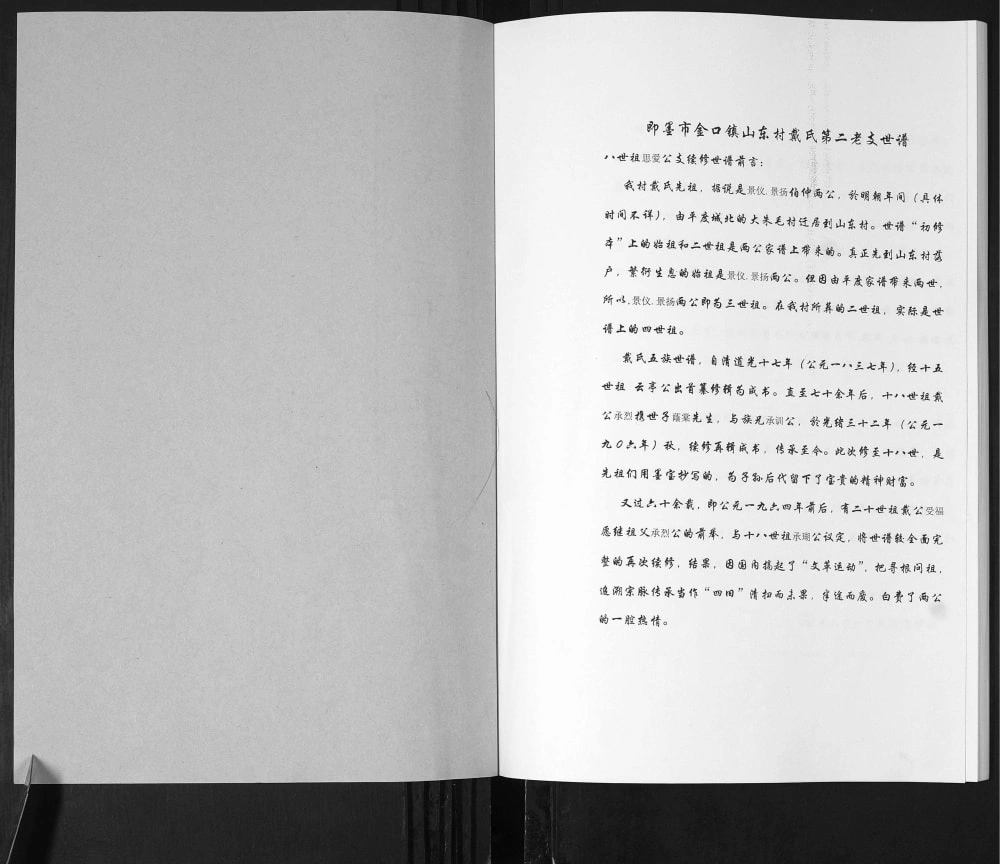 即墨市金口镇山东村戴氏第二老支世谱
八世祖思爱公支续修世谱前言：
我村戴氏先祖，据说是景仪.景扬伯仲两公，於明朝年间（具体
时间不详），由平度城北的大朱毛村迁居到山东村。世谱“初修
本”上的始祖和二世祖是两公家谱上带来的。真正先到山东村落
户，繁衍生息的始祖是景仪.景扬两公。但因由平度家谱带来两世，
所以.景仪.景扬两公即为三世祖。在我村所葬的二世祖，实际是世
谱上的四世祖。
戴氏五族世谱，自清道光十七年（公元一八三七年），经十五
世祖 云亭公出首纂修辑为成书。直至七十余年后，十八世祖戴
公承烈携世子蔭棠先生，与族兄承训公，於光绪三十二年（公元一
九０六年）秋，续修再辑成书，传承至今。此次修至十八世，是
先祖们用墨宝抄写的，为子孙后代留下了宝贵的精神财富。
又过六十余载，即公元一九六四年前后，有二十世祖戴公受福
愿继祖父承烈公的前举，与十八世祖承瑚公议定，将世谱较全面完
整的再次续修，结果，因国内搞起了“文革运动”，把寻根问祖，
追溯宗脉传承当作“四旧”清扫而未果，半途而废。白费了两公
的一腔热情。